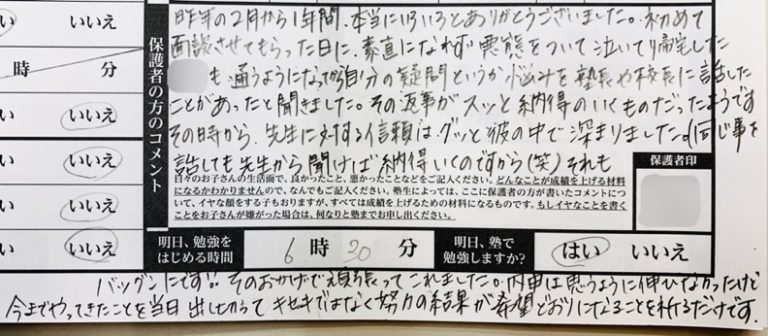 いいえ
時 分
いいえ
いいえ
いいえ
いいえ
保護者の方のコメント
昨年の2月から1年間、本当にいろいろとありがとうございました。初めて
面談させてもらった日に、素直になれず悪態をついて泣いて帰宅した
も通うようになってから自分の疑問というか悩みを塾長や校長に話した
ことがあったと聞きました。その返事がスッと納得のいくものだったようです
その時から、先生に対する信頼は、グッと彼の中で深まりました。(同じ事を
話しても先生から聞けば納得いくのですから(笑) それも
日々のお子さんの生活面で、良かったこと、悪かったことなどをご記入ください。どんなことが成績を上げる材料
になるかわかりませんので、なんでもご記入ください。塾生によっては、ここに保護者の方が書いたコメントについ
て、イヤな顔をする子もおりますが、すべては成績を上げるための材料になるものです。もしイヤなことを書く
ことをお子さんが嫌がった場合は、何なりと塾までお申し出ください。
保護者印
明日、勉強をはじめる時間
6時30分
明日、塾で勉強しますか?
はい いいえ
バツグンにです!! そのおかげで頑張ってこれました。内申は思うように伸びなかったけど
今までやってきたことを当日出しきってキセキではなく努力の結果が希望どおりになることを祈るだけです。